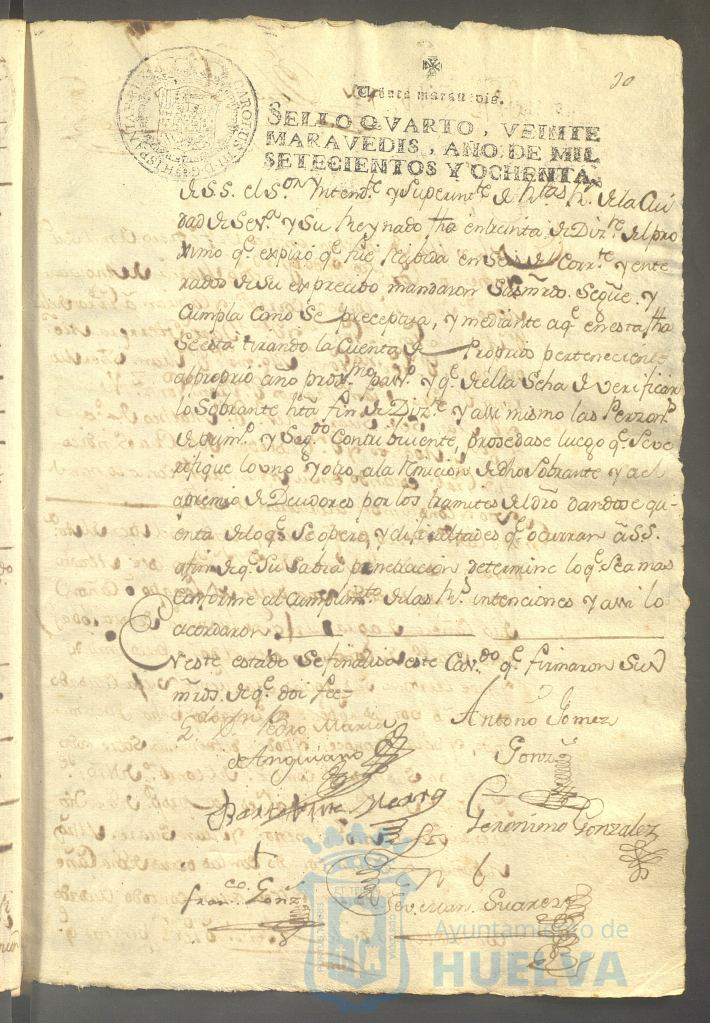 20
Treinta maravedis.
SELLO QVARTO, VEINTE
MARAVEDIS, AÑO DE MIL
SETECIENTOS Y OCHENTA.
de S.S. el Sor Yntendte y Superintte de Rtas Rs de la Ciu
dad de Seva y Su Reynado fha en treinta de Dizre del pro
ximo qe expiró qe fue recibida en Seis de Corrte y ente
rados de su expresibo mandaron Sus mrds. Segue, y
Cumpla como Se preceptua, y mediante aqe en esta fha
Se está tirando la Cuenta de Propios perteneciente
a proprio año proxmo pasdo y qe de ella Se ha de verificar
lo Sobrante hta fin de Dizre y assi mismo las Perzons
de Prims y Segdo Contribuiente, prosedase luego qe Seve
rifique lo uno y otro, a la remicion de dho Sobrante y a el
apremio de Deudores por los tramites del dro dandose qu-
enta de lo qe Se opere, y dificultades qe ocurran á S.S.
afin de qe Su Sabia penetracion determine lo qe Sea mas
Conforme al Cumplimto de las Rs intenciones y assi lo
acordaron
En este estado Se finaliso este Cavdo qe firmaron Sus
mrds. de qe doi fee-
Pedro Maria
de Anguiano
Antono Gomez
Gonz
Bartolome Merzo
Geronimo Gonzalez
franco. Gonz
Severian Suarez
Ayuntamiento de
HUELVA